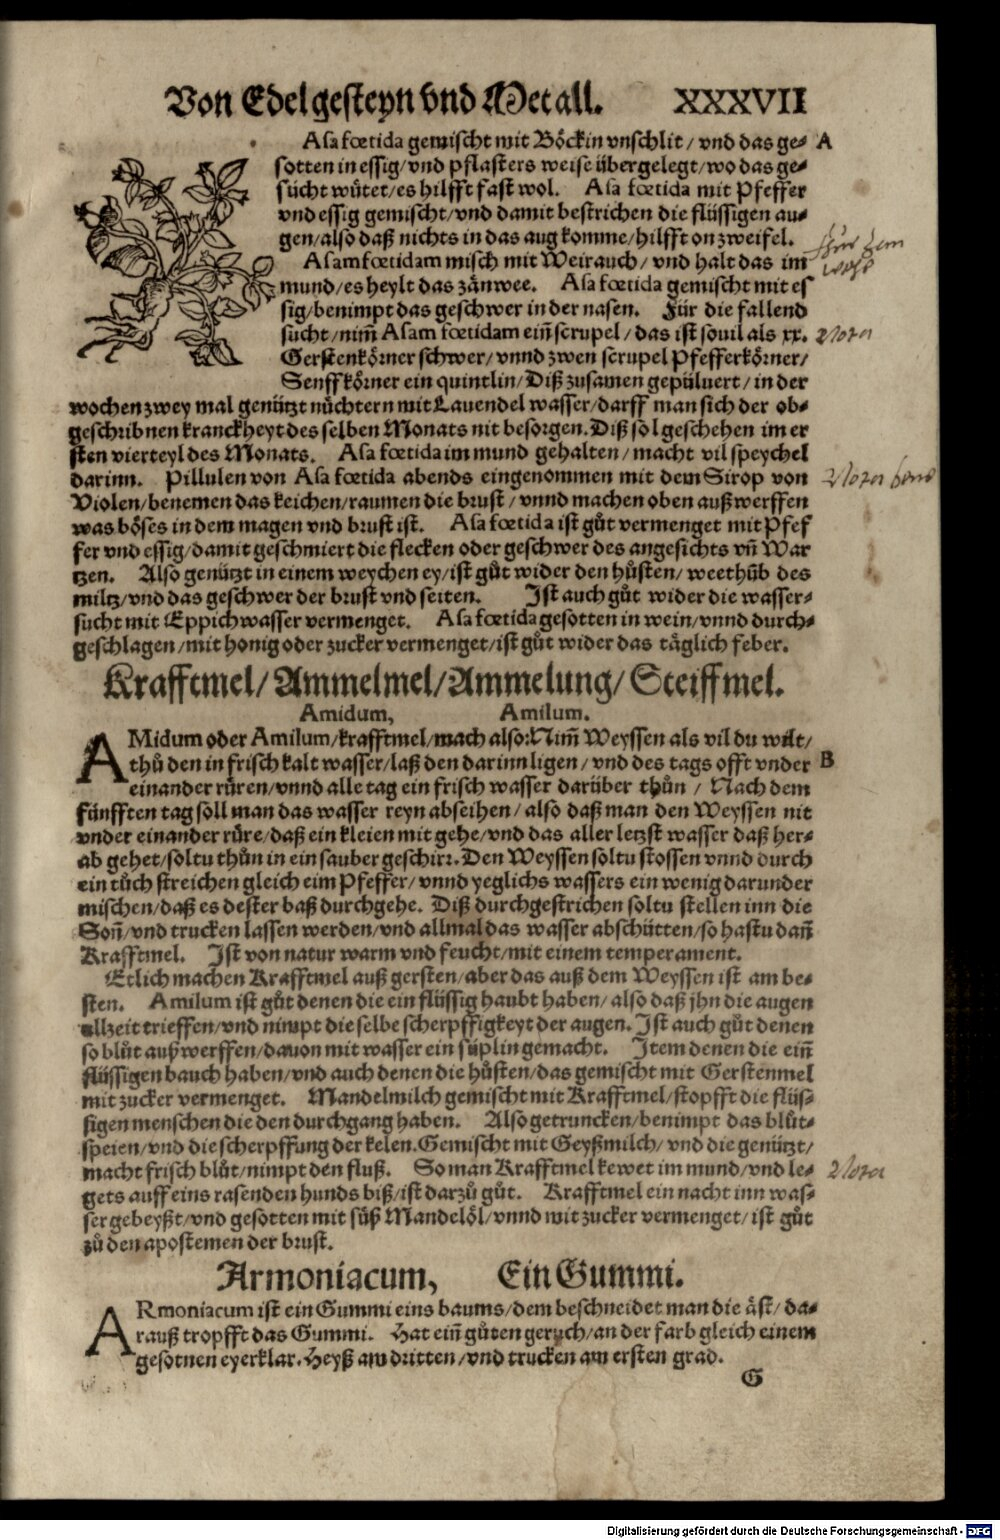 Von Edelgesteyn vnd Metall. XXXVII
Asa fœtida gemischt mit Böckin vnschlit / vnd das ge- A
sotten in essig / vnd pflasters weise übergelegt / wo das ge-
sücht wütet / es hilfft fast wol. Asa fœtida mit Pfeffer
vnd essig gemischt / vnd damit bestrichen die flüssigen au-
gen / also daß nichts in das aug komme / hilfft on zweifel.
Asam fœtidam misch mit Weirauch / vnd halt das im
mund / es heylt das zänwee. Asa fœtida gemischt mit es
sig / benimpt das geschwer in der nasen. Für die fallend
sucht / nim̄ Asam fœtidam ein̄ scrupel / das ist souil als xx.
Gerstenkörner schwer / vnnd zwen scrupel Pfefferkörner /
Senffkörner ein quintlin / Diß zusamen gepüluert / in der
wochen zwey mal genützt nüchtern mit Lauendel wasser / darff man sich der ob-
geschribnen kranckheyt des selben Monats nit besorgen. Diß sol geschehen im er
sten vierteyl des Monats. Asa fœtida im mund gehalten / macht vil speychel
darinn. Pillulen von Asa fœtida abends eingenommen mit dem Sirop von
Violen / benemen das keichen / raumen die brust / vnnd machen oben außwerffen
was böses in dem magen vnd brust ist. Asa fœtida ist gůt vermenget mit Pfef
fer vnd essig / damit geschmiert die flecken oder geschwer des angesichts vn̄ War
tzen. Also genützt in einem weychen ey / ist gůt wider den hůsten / weethůb des
miltz / vnd das geschwer der brust vnd seiten. Ist auch gůt wider die wasser-
sucht mit Eppichwasser vermenget. Asa fœtida gesotten in wein / vnnd durch-
geschlagen / mit honig oder zucker vermenget / ist gůt wider das täglich feber.
Krafftmel / Ammelmel / Ammelung / Steiffmel.
Amidum, Amilum.
AMidum oder Amilum / krafftmel / mach also: Nim̄ Weyssen als vil du wilt /
thů den in frisch kalt wasser / laß den darinn ligen / vnd des tags offt vnder B
einander rüren / vnnd alle tag ein frisch wasser darüber thůn / Nach dem
fünfften tag soll man das wasser reyn abseihen / also daß man den Weyssen nit
vnder einander rüre / daß ein kleien mit gehe / vnd das aller letzst wasser daß her-
ab gehet / soltu thůn in ein sauber geschirr. Den Weyssen soltu stossen vnnd durch
ein tůch streichen gleich eim Pfeffer / vnnd yeglichs wassers ein wenig darunder
mischen / daß es dester baß durchgehe. Diß durchgestrichen soltu stellen inn die
Son̄ / vnd trucken lassen werden / vnd allmal das wasser abschütten / so hastu dan̄
Krafftmel. Ist von natur warm vnd feucht / mit einem temperament.
Etlich machen Krafftmel auß gersten / aber das auß dem Weyssen ist am be-
sten. Amilum ist gůt denen die ein flüssig haubt haben / also daß jhn die augen
allzeit trieffen / vnd nimpt die selbe scherpffigkeyt der augen. Ist auch gůt denen
so blůt außwerffen / dauon mit wasser ein süplin gemacht. Item denen die ein̄
flüssigen bauch haben / vnd auch denen die hůsten / das gemischt mit Gerstenmel
mit zucker vermenget. Mandelmilch gemischt mit Krafftmel / stopfft die flüs-
sigen menschen die den durchgang haben. Also getruncken / benimpt das blůt-
speien / vnd die scherpffung der kelen. Gemischt mit Geyßmilch / vnd die genützt /
macht frisch blůt / nimpt den fluß. So man Krafftmel kewet im mund / vnd le-
gets auff eins rasenden hunds biß / ist darzů gůt. Krafftmel ein nacht inn was-
ser gebeyßt / vnd gesotten mit süß Mandelöl / vnnd mit zucker vermenget / ist gůt
zů den apostemen der brust.
Armoniacum, Ein Gummi.
ARmoniacum ist ein Gummi eins baums / dem beschneidet man die äst / da-
rauß tropfft das Gummi. Hat ein̄ gůten geruch / an der farb gleich einem
gesotnen eyerklar. Heyß am dritten / vnd trucken am ersten grad.
G
Nota
Nota
Nota
Digitalisierung gefördert durch die Deutsche Forschungsgemeinschaft - DFG